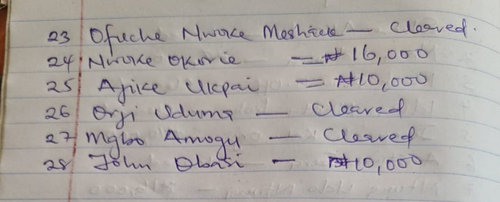 23 Ofuche Nwoke Meshick — Cleared.
24 Nwoke Okorie = ₦16,000
25 Ajike Ukpai = ₦10,000
26 Orji Uduma — Cleared
27 Mgbo Amogu — Cleared
28 John Obasi — ₦10,000